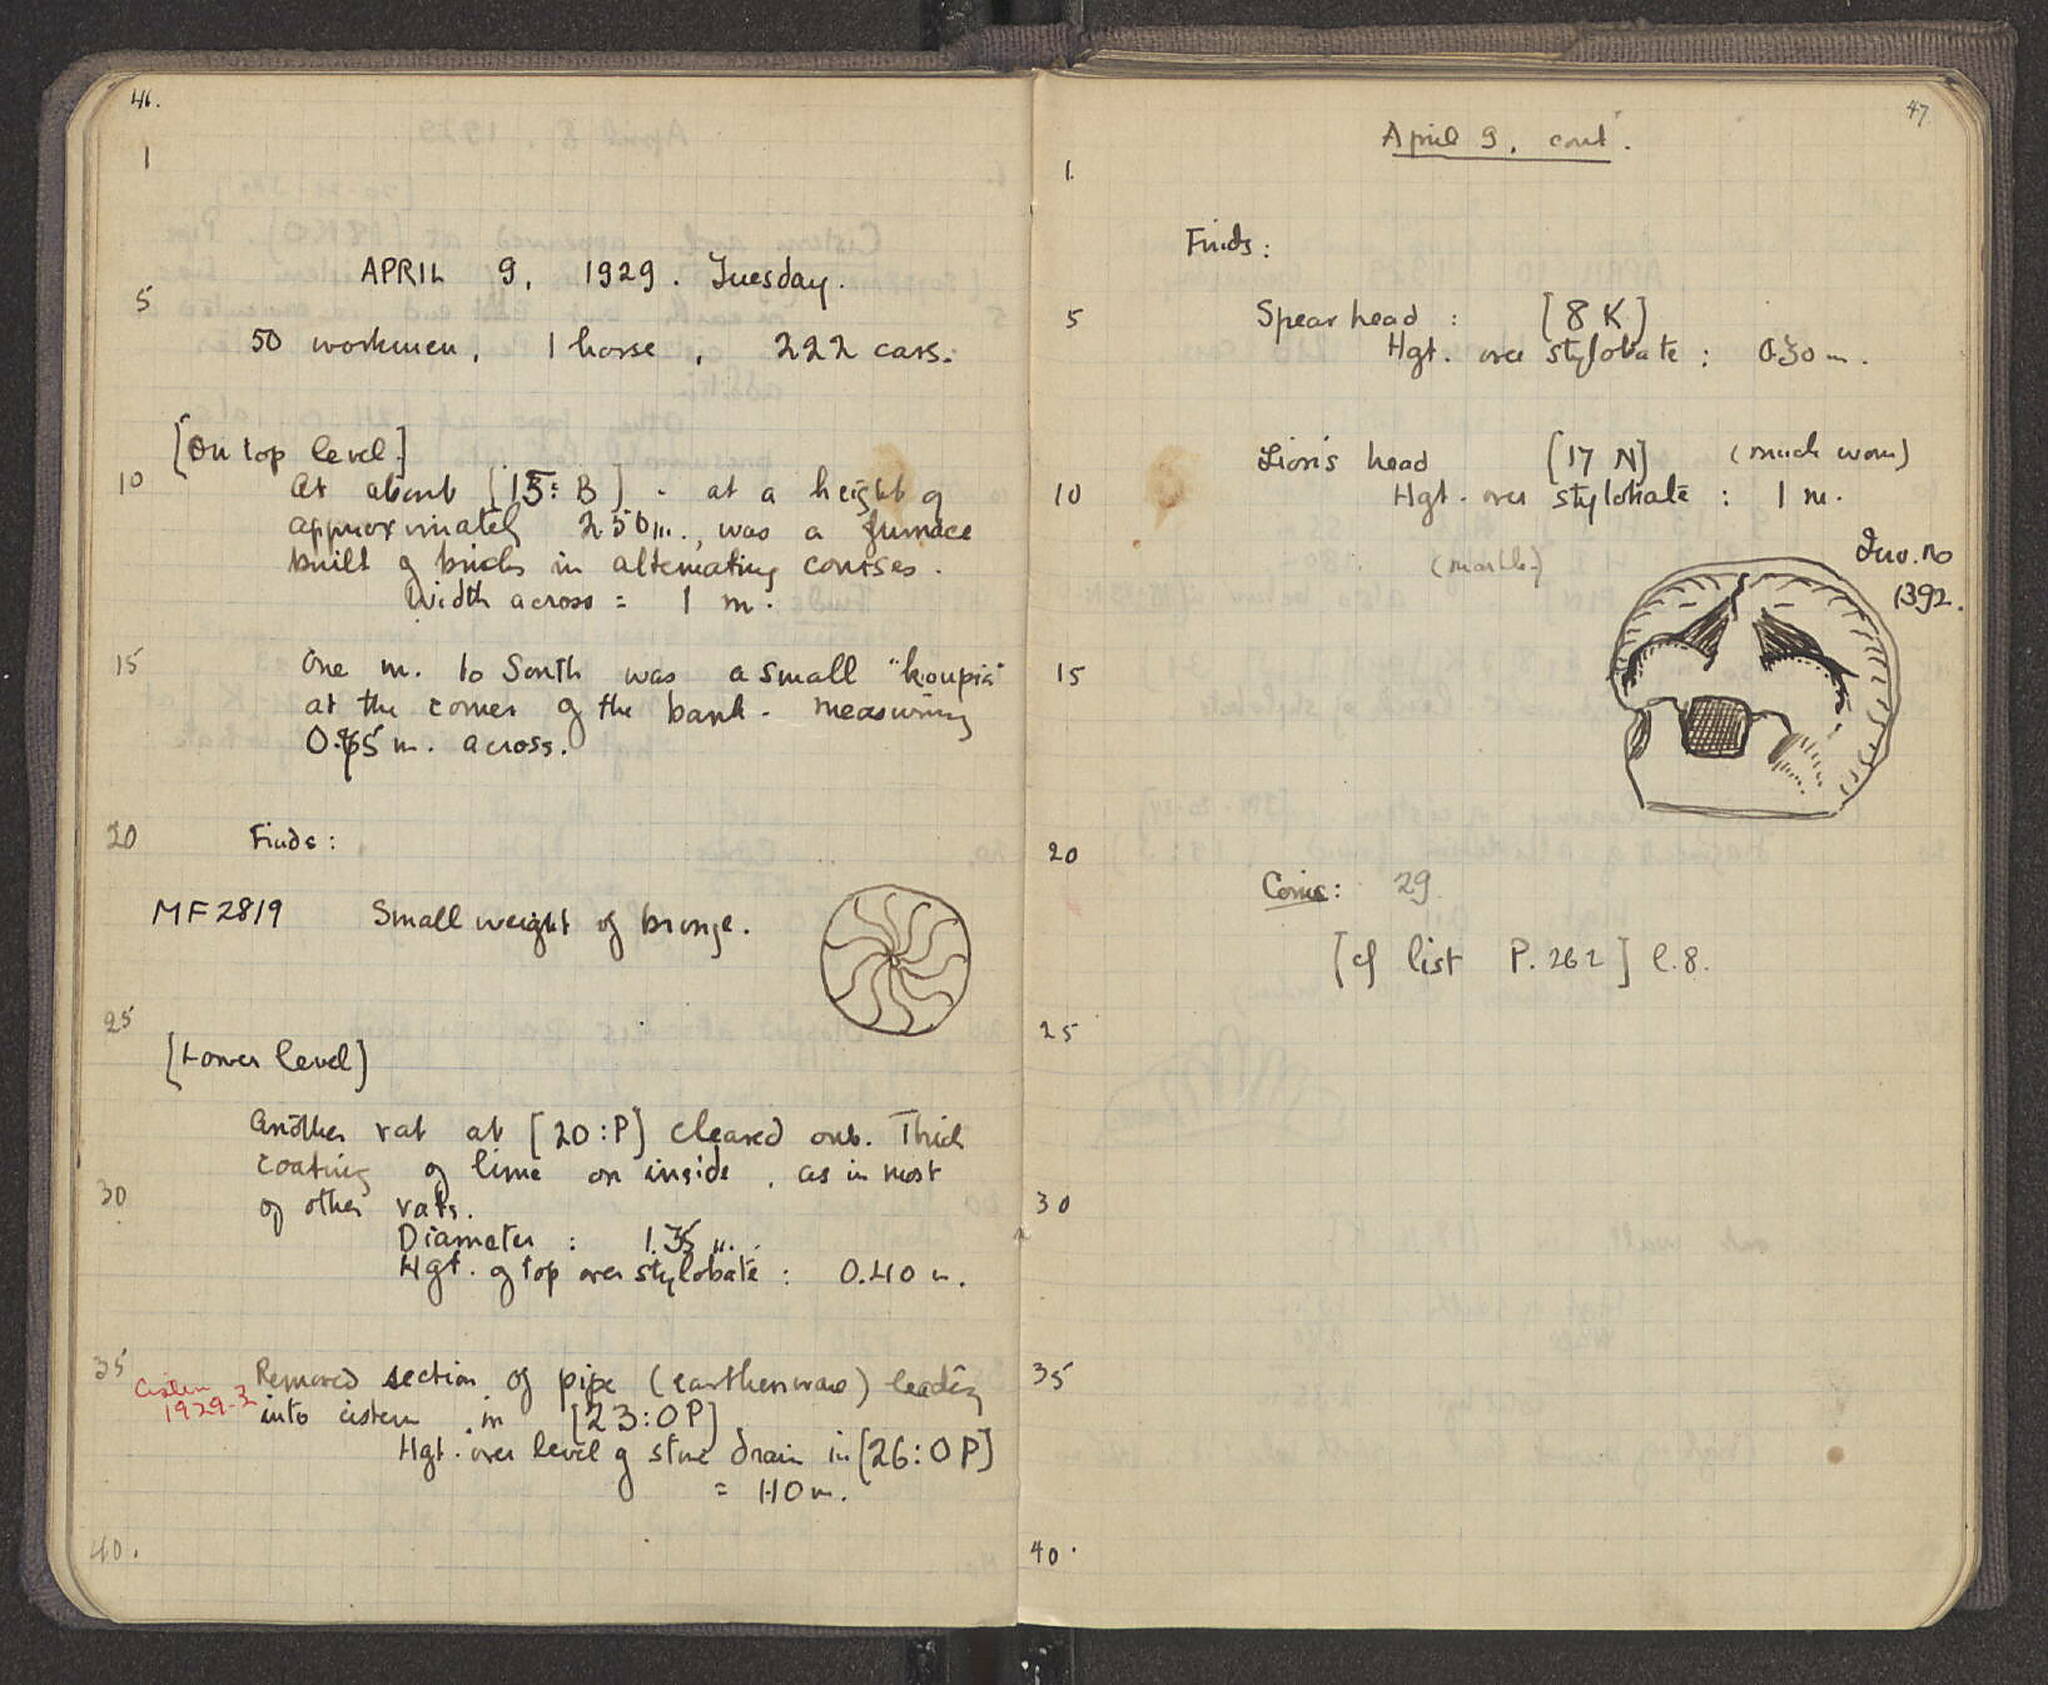 46.
1
APRIL 9, 1929. Tuesday.
5
50 workmen, 1 horse, 222 cars.
[On top level]
10 At about [15:B] - at a height of
approximately 2.50 m., was a furnace
built of bricks in alternating courses.
Width across = 1 m.
15 One m. to South was a small "koupia"
at the corner of the bank - measuring
m. across.
20 Finds:
MF2819 Small weight of bronze.
25
[Lower level]
Another vat at [20:P] cleared out. Thick
coating of lime on inside, as in most
30 of other vats.
Diameter : 1.35 m.
Hgt. of top over stylobate : 0.40 m.
35 Removed section of pipe (earthenware) leading
Cistern
1929-2 into cistern in [23:OP]
Hgt. over level of stone drain in [26:OP]
= 1.10 m.
40.
47
April 9, cont.
1.
Finds:
5 Spear head : [8 K]
Hgt. over stylobate : 0.30 m.
Lion's head [17 N] (much worn)
10 Hgt. over stylobate : 1 m.
(marble) Inv. no
1392.
15
20
Coins: 29
[cf list P. 262] l.8.
25
30
35
40.